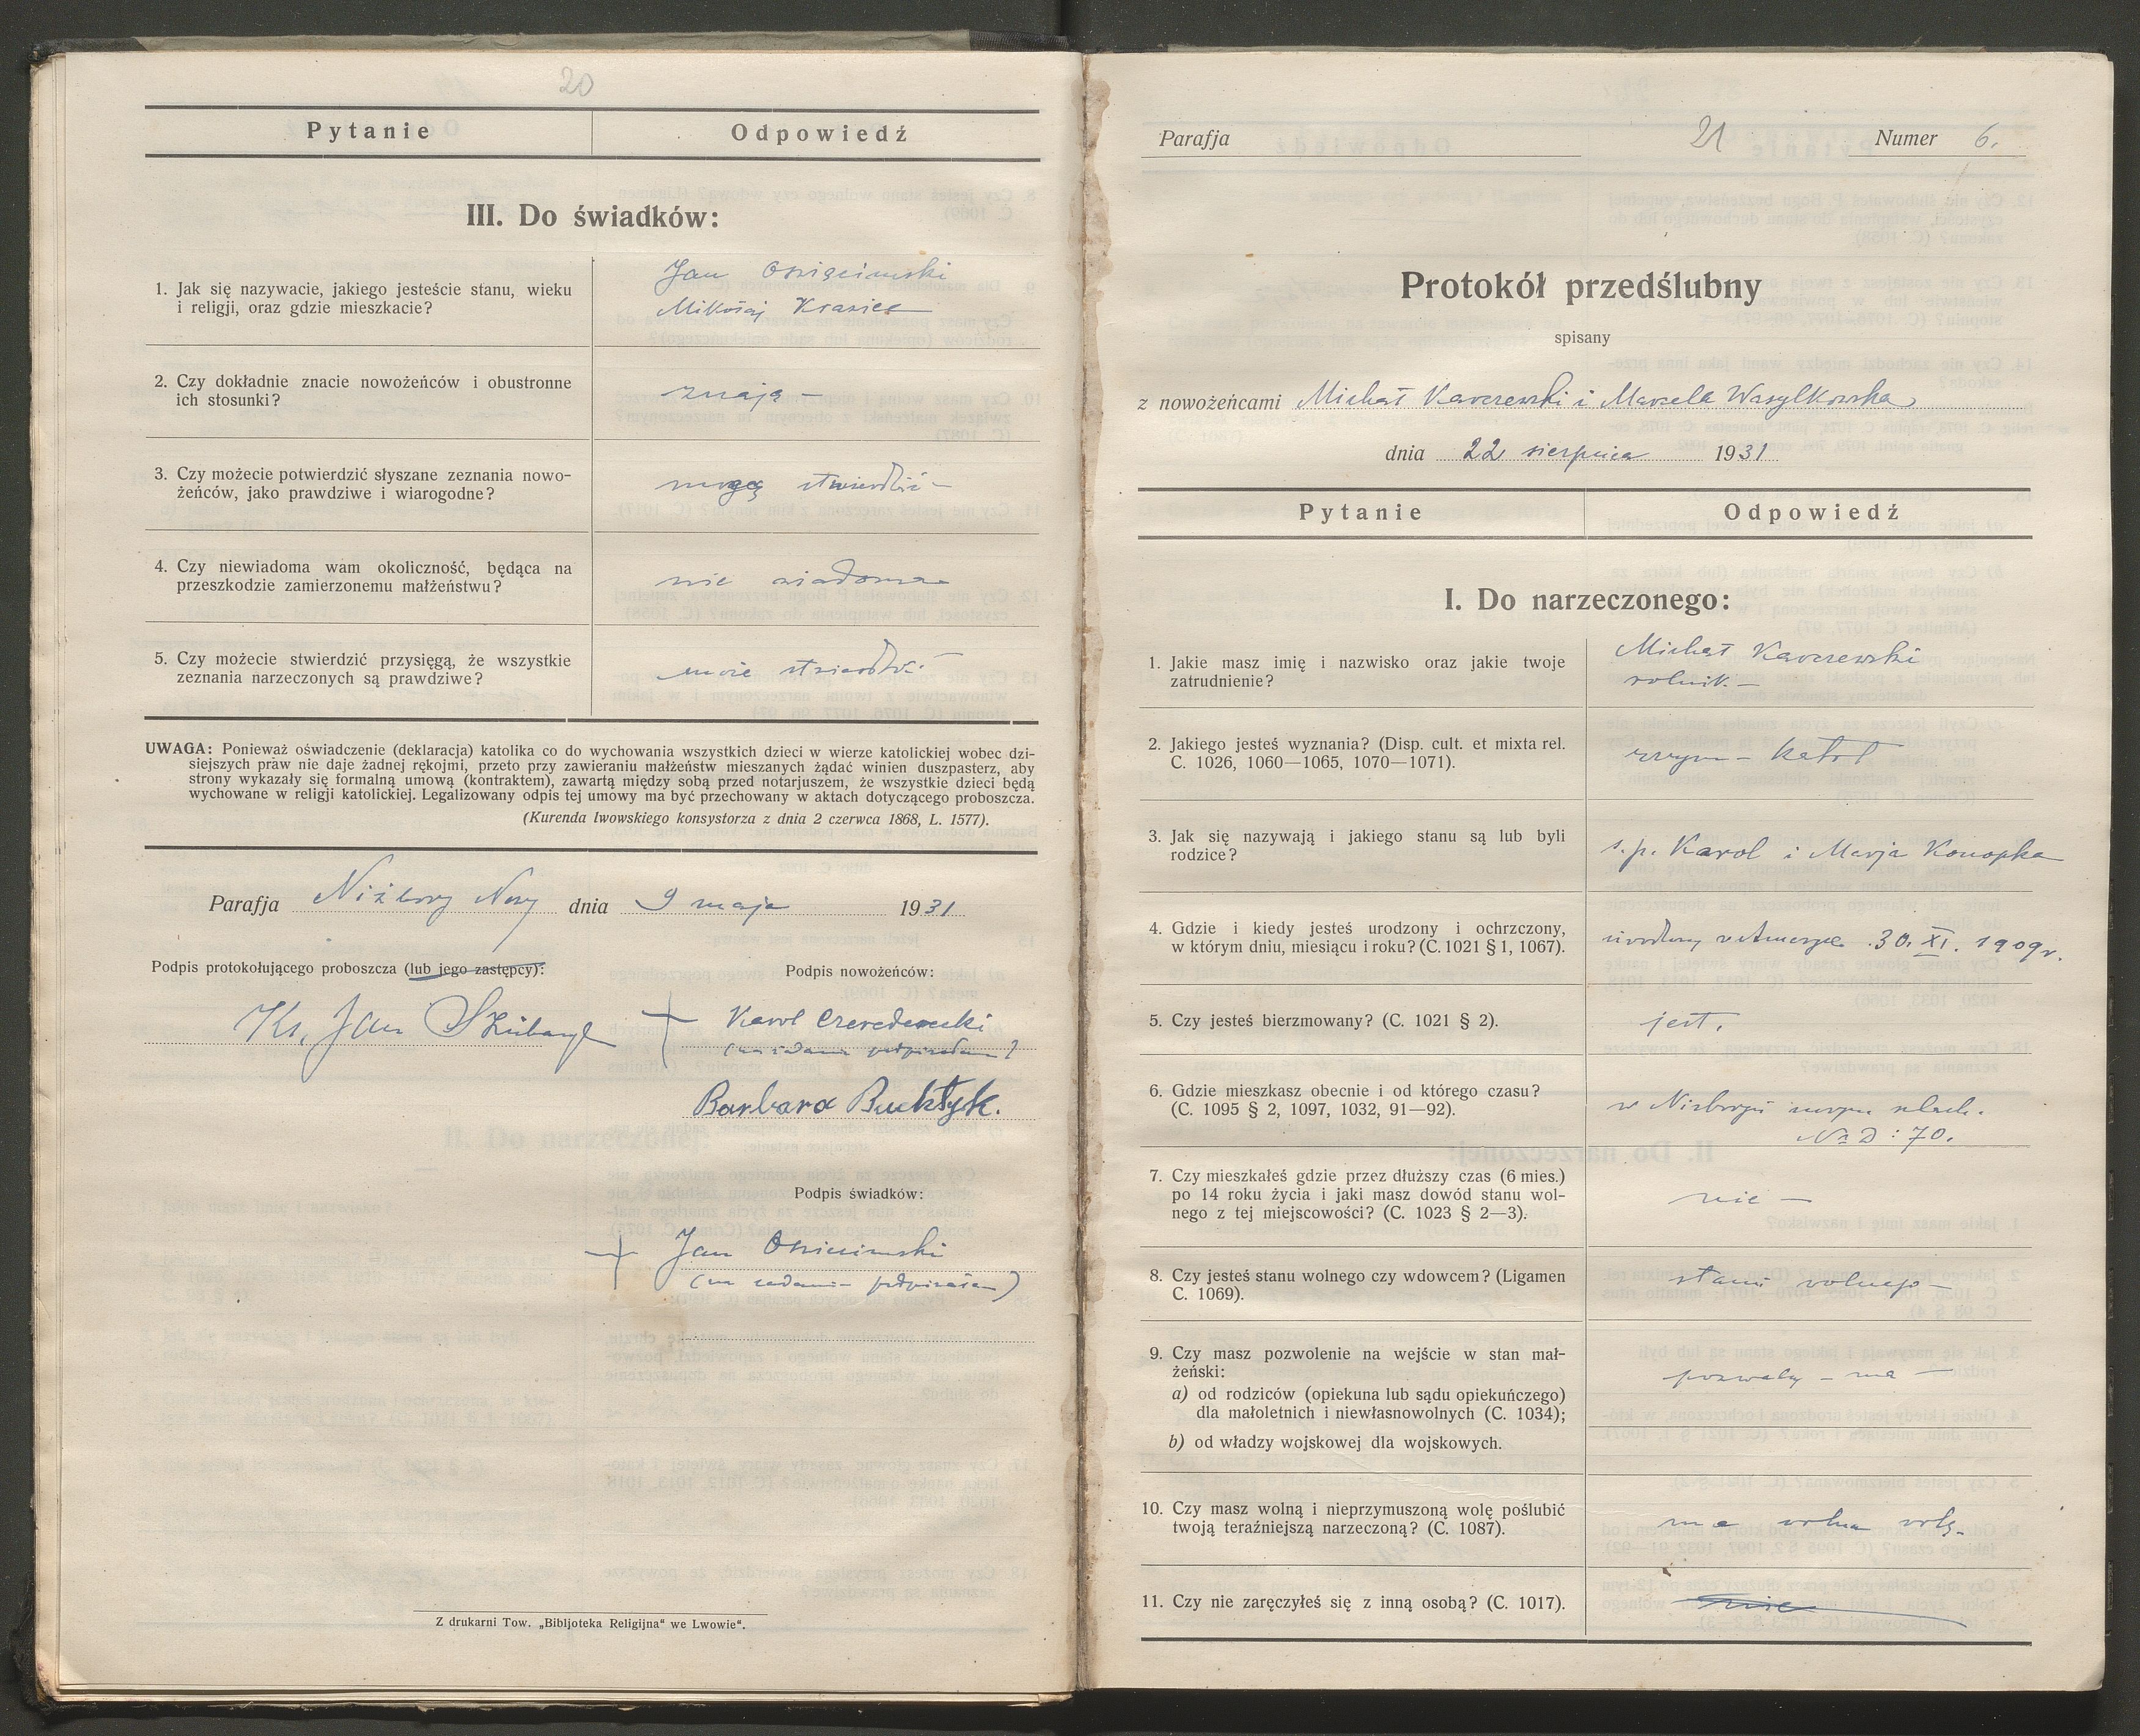 20
Pytanie
Odpowiedź
III. Do świadków:
1. Jak się nazywacie, jakiego jesteście stanu, wieku
i religji, oraz gdzie mieszkacie?
Jan
Mikołaj Krasiec
2. Czy dokładnie znacie nowożeńców i obustronne
ich stosunki?
znają –
3. Czy możecie potwierdzić słyszane zeznania nowo-
żeńców, jako prawdziwe i wiarogodne?
mogą stwierdzić –
4. Czy niewiadoma wam okoliczność, będąca na
przeszkodzie zamierzonemu małżeństwu?
nie wiadoma
5. Czy możecie stwierdzić przysięgą, że wszystkie
zeznania narzeczonych są prawdziwe?
może stwierdzić –
UWAGA: Ponieważ oświadczenie (deklaracja) katolika co do wychowania wszystkich dzieci w wierze katolickiej wobec dzi-
siejszych praw nie daje żadnej rękojmi, przeto przy zawieraniu małżeństw mieszanych żądać winien duszpasterz, aby
strony wykazały się formalną umową (kontraktem), zawartą między sobą przed notarjuszem, że wszystkie dzieci będą
wychowane w religji katolickiej. Legalizowany odpis tej umowy ma być przechowany w aktach dotyczącego proboszcza.
(Kurenda lwowskiego konsystorza z dnia 2 czerwca 1868, L. 1577).
Parafja Niżborg Nowy dnia 9 maja 1931
Podpis protokołującego proboszcza (lub jego zastępcy):
Podpis nowożeńców:
Ks. Jan
Karol
Barbara Bucktyk.
Podpis świadków:
Jan
(na żądanie podpisałem)
Z drukarni Tow. „Bibljoteka Religijna" we Lwowie".
Parafja
21
Numer 6.
Protokół przedślubny
spisany
z nowożeńcami Michał Karczewski i Marcela Wasylkowska
dnia 22 sierpnia 1931
Pytanie
Odpowiedź
I. Do narzeczonego:
1. Jakie masz imię i nazwisko oraz jakie twoje
zatrudnienie?
Michał Karczewski
rolnik –
2. Jakiego jesteś wyznania? (Disp. cult. et mixta rel.
C. 1026, 1060—1065, 1070—1071).
rzym – katol
3. Jak się nazywają i jakiego stanu są lub byli
rodzice?
ś.p. Karol i Marja Konopka
4. Gdzie i kiedy jesteś urodzony i ochrzczony,
w którym dniu, miesiącu i roku? (C. 1021 § 1, 1067).
urodzony w Ameryce 30. XI. 1909 r.
5. Czy jesteś bierzmowany? (C. 1021 § 2).
jest.
6. Gdzie mieszkasz obecnie i od którego czasu?
(C. 1095 § 2, 1097, 1032, 91—92).
w Niżborgu nowym szlach.
Nr D: 70.
7. Czy mieszkałeś gdzie przez dłuższy czas (6 mies.)
po 14 roku życia i jaki masz dowód stanu wol-
nego z tej miejscowości? (C. 1023 § 2—3).
nie –
8. Czy jesteś stanu wolnego czy wdowcem? (Ligamen
C. 1069).
stanu wolnego –
9. Czy masz pozwolenie na wejście w stan mał-
żeński:
a) od rodziców (opiekuna lub sądu opiekuńczego)
dla małoletnich i niewłasnowolnych (C. 1034);
b) od władzy wojskowej dla wojskowych.
– ma –
10. Czy masz wolną i nieprzymuszoną wolę poślubić
twoją teraźniejszą narzeczoną? (C. 1087).
ma wolną wolę.
11. Czy nie zaręczyłeś się z inną osobą? (C. 1017).
nie